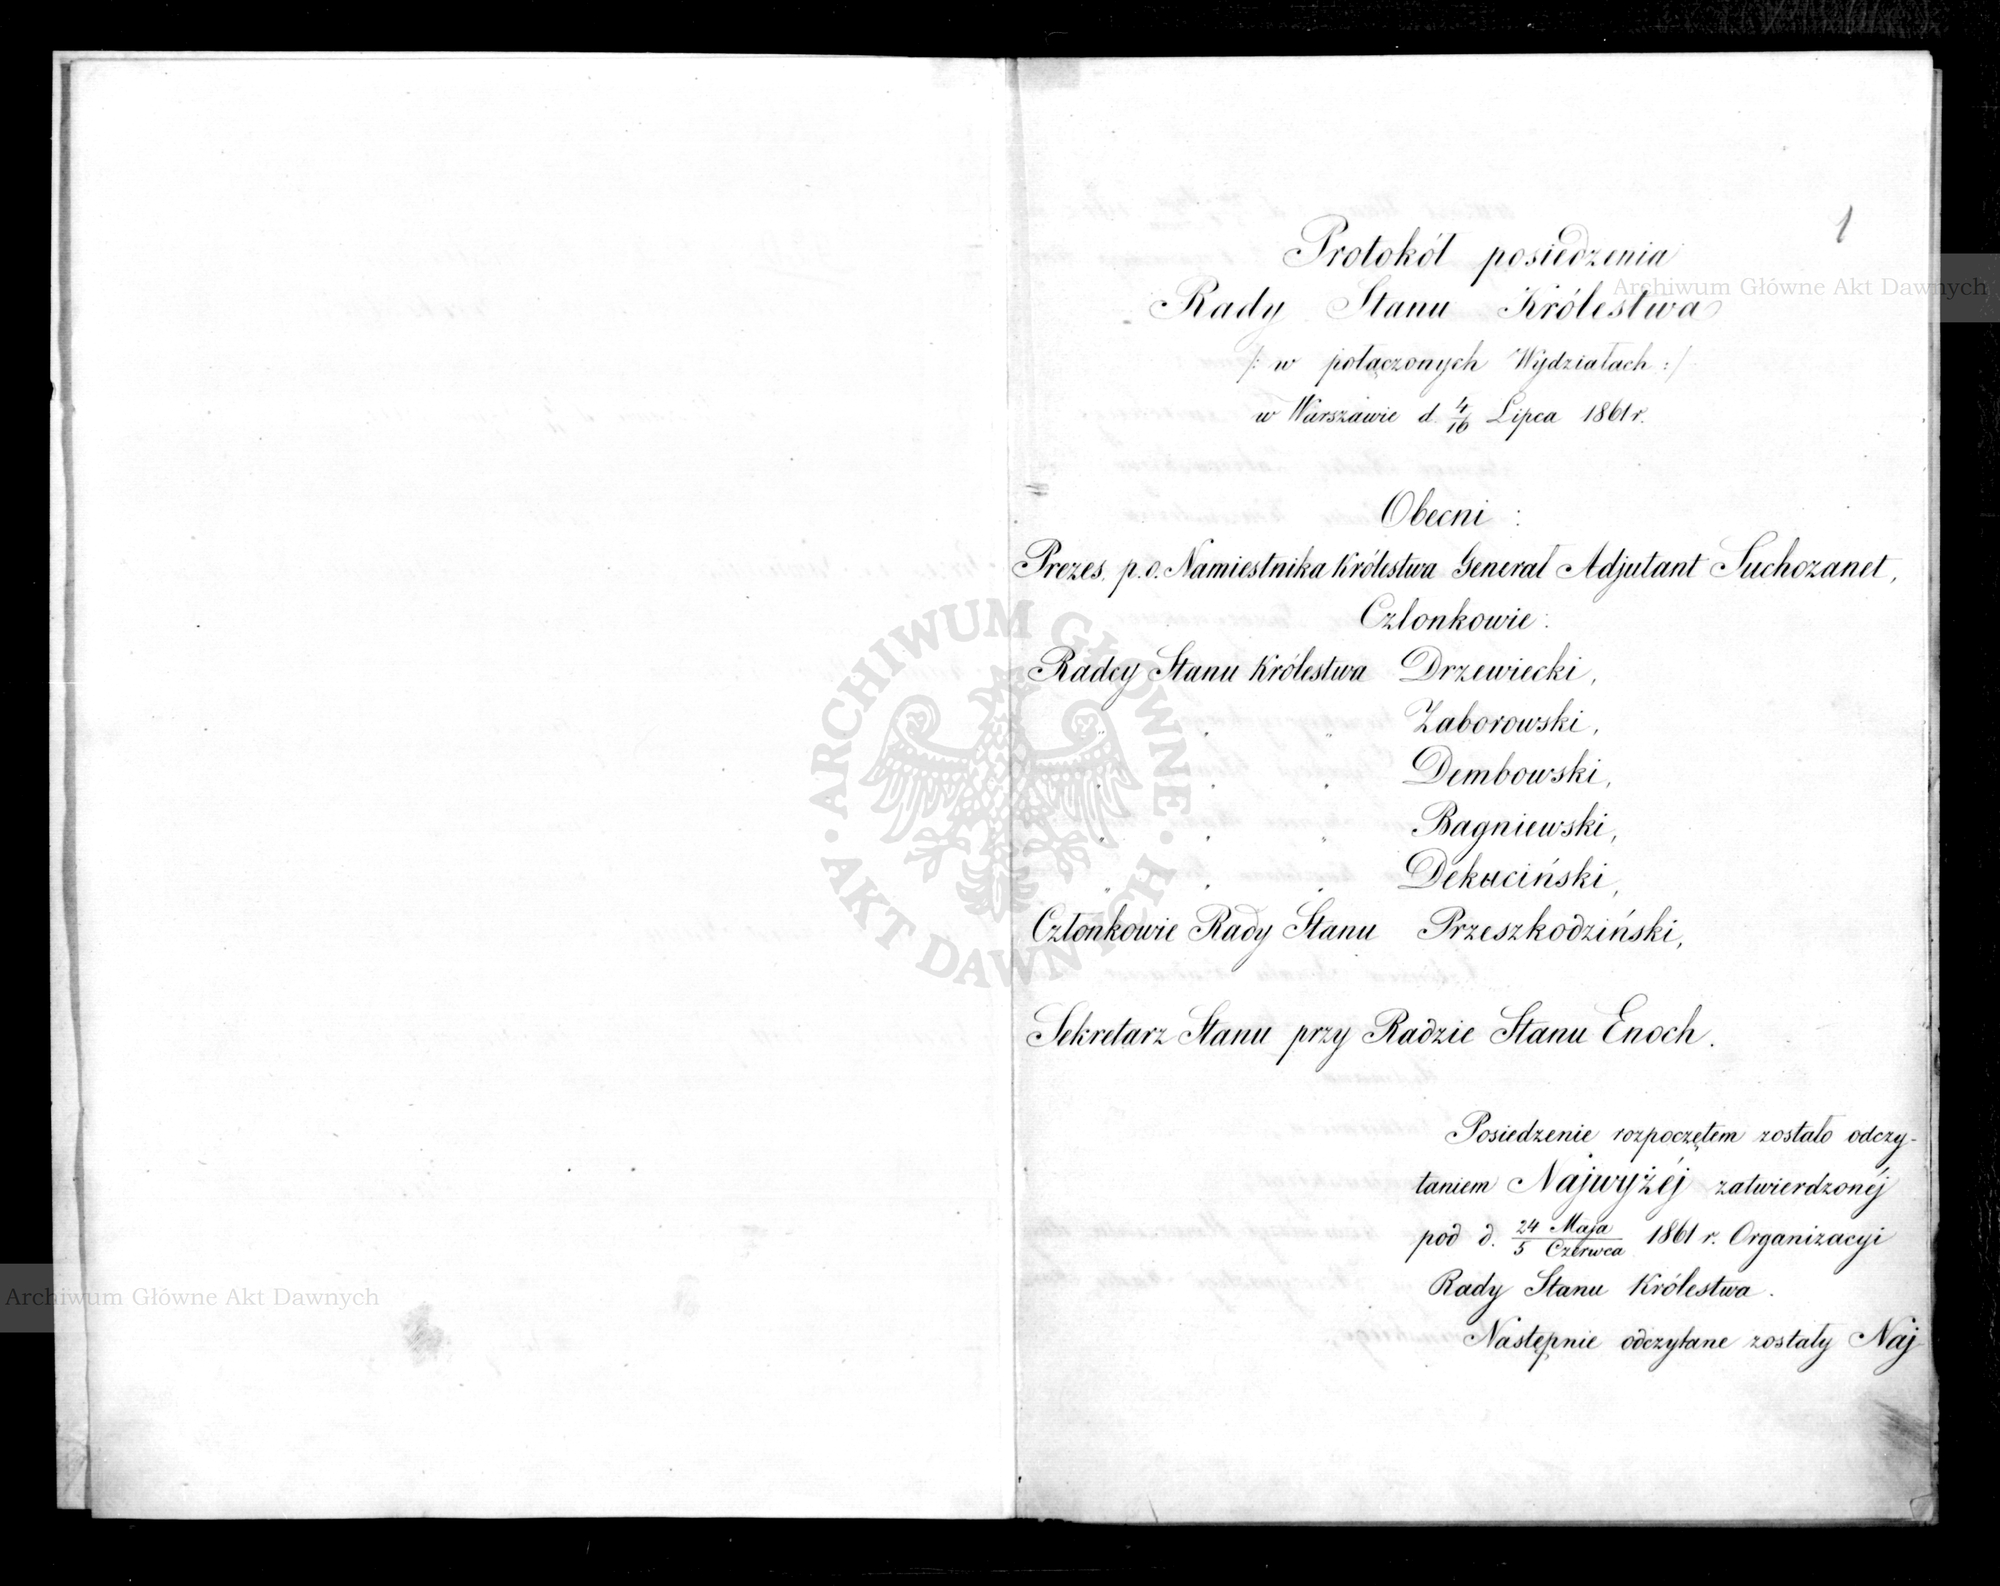 1
Protokół posiedzenia
Rady Stanu Królestwa
/: w połączonych Wydziałach :/
w Warszawie d. 4/16 Lipca 1861 r.
Obecni :
Prezes, p. o. Namiestnika Królestwa Generał Adjutant Suchozanet,
Członkowie :
Radcy Stanu Królestwa Drzewiecki,
" " " Zaborowski,
" " " Dembowski,
" " " Bagniewski,
" " " Dekuciński,
Członkowie Rady Stanu Przeszkodziński,
Sekretarz Stanu przy Radzie Stanu Enoch.
Posiedzenie rozpoczętem zostało odczy-
taniem Najwyżéj zatwierdzonéj
pod d. 24 Maja / 5 Czerwca 1861 r. Organizacyi
Rady Stanu Królestwa.
Następnie odczytane zostały Naj-
Archiwum Główne Akt Dawnych
ARCHIWUM GŁÓWNE · AKT DAWNYCH ·
Archiwum Główne Akt Dawnych